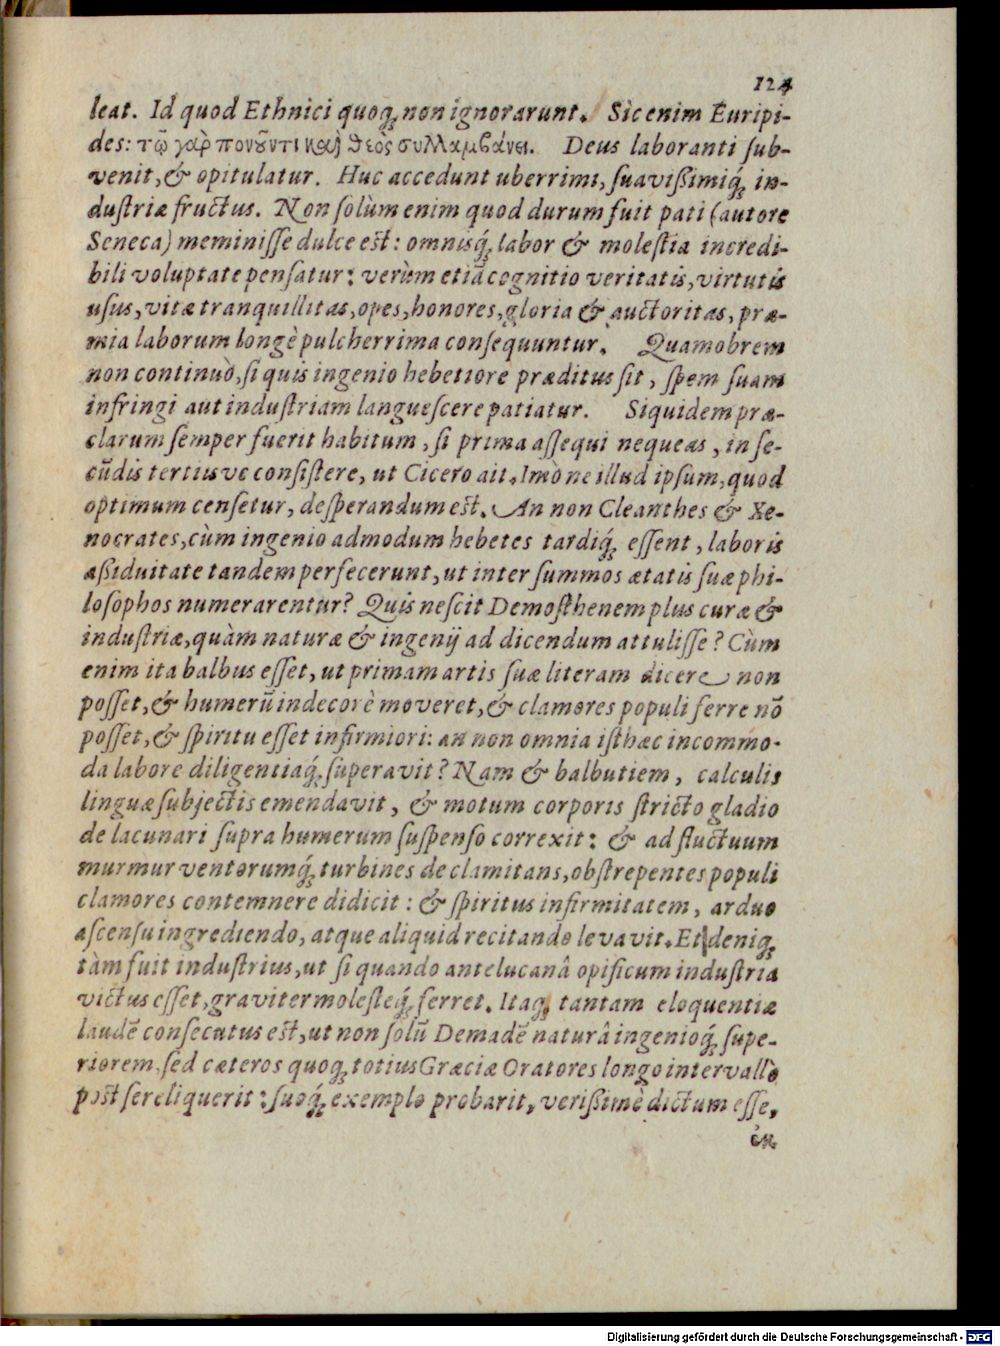 124
leat. Id quod Ethnici quoq́; non ignorarunt. Sic enim Euripi-
des: τῷ γὰρ πονοῦντι καὶ θεὸς συλλαμβάνει. Deus laboranti ſub-
venit, & opitulatur. Huc accedunt uberrimi, ſuavißimiq́; in-
duſtriæ fructus. Non ſolùm enim quod durum fuit pati (autore
Seneca) meminiſſe dulce eſt: omnisq́; labor & moleſtia incredi-
bili voluptate penſatur: verùm etiã cognitio veritatis, virtutis
uſus, vitæ tranquillitas, opes, honores, gloria & auctoritas, præ-
mia laborum longè pulcherrima conſequuntur. Quamobrem
non continuò, ſi quis ingenio hebetiore præditus ſit, ſpem ſuam
infringi aut induſtriam langueſcere patiatur. Siquidem præ-
clarum ſemper fuerit habitum, ſi prima aſſequi nequeas, in ſe-
cũdis tertiisve conſiſtere, ut Cicero ait. Imò ne illud ipſum, quod
optimum cenſetur, deſperandum eſt. An non Cleanthes & Xe-
nocrates, cùm ingenio admodum hebetes tardiq́; eſſent, laboris
aßiduitate tandem perfecerunt, ut inter ſummos ætatis ſuæ phi-
loſophos numerarentur? Quis neſcit Demoſthenem plus curæ &
induſtriæ, quàm naturæ & ingenij ad dicendum attuliſſe? Cùm
enim ita balbus eſſet, ut primam artis ſuæ literam dicere non
poſſet, & humerũ indecorè moveret, & clamores populi ferre nõ
poſſet, & ſpiritu eſſet infirmiori: an non omnia iſthæc incommo-
da labore diligentiaq́; ſuperavit? Nam & balbutiem, calculis
linguæ ſubjectis emendavit, & motum corporis ſtricto gladio
de lacunari ſupra humerum ſuſpenſo correxit: & ad fluctuum
murmur ventorumq́; turbines declamitans, obſtrepentes populi
clamores contemnere didicit: & ſpiritus infirmitatem, arduo
aſcenſu ingrediendo, atque aliquid recitando levavit. Et deniq;
tàm fuit induſtrius, ut ſi quando antelucanâ opificum induſtria
victus eſſet, graviter moleſteq́; ferret. Itaq; tantam eloquentiæ
laudẽ conſecutus eſt, ut non ſolũ Demadẽ naturâ ingenioq́; ſupe-
riorem, ſed cæteros quoq; totius Græciæ Oratores longo intervallo
poſt ſe reliquerit: ſuoq́; exemplo probarit, verißimè dictum eſſe,
ἐκ
Digitalisierung gefördert durch die Deutsche Forschungsgemeinschaft - DFG